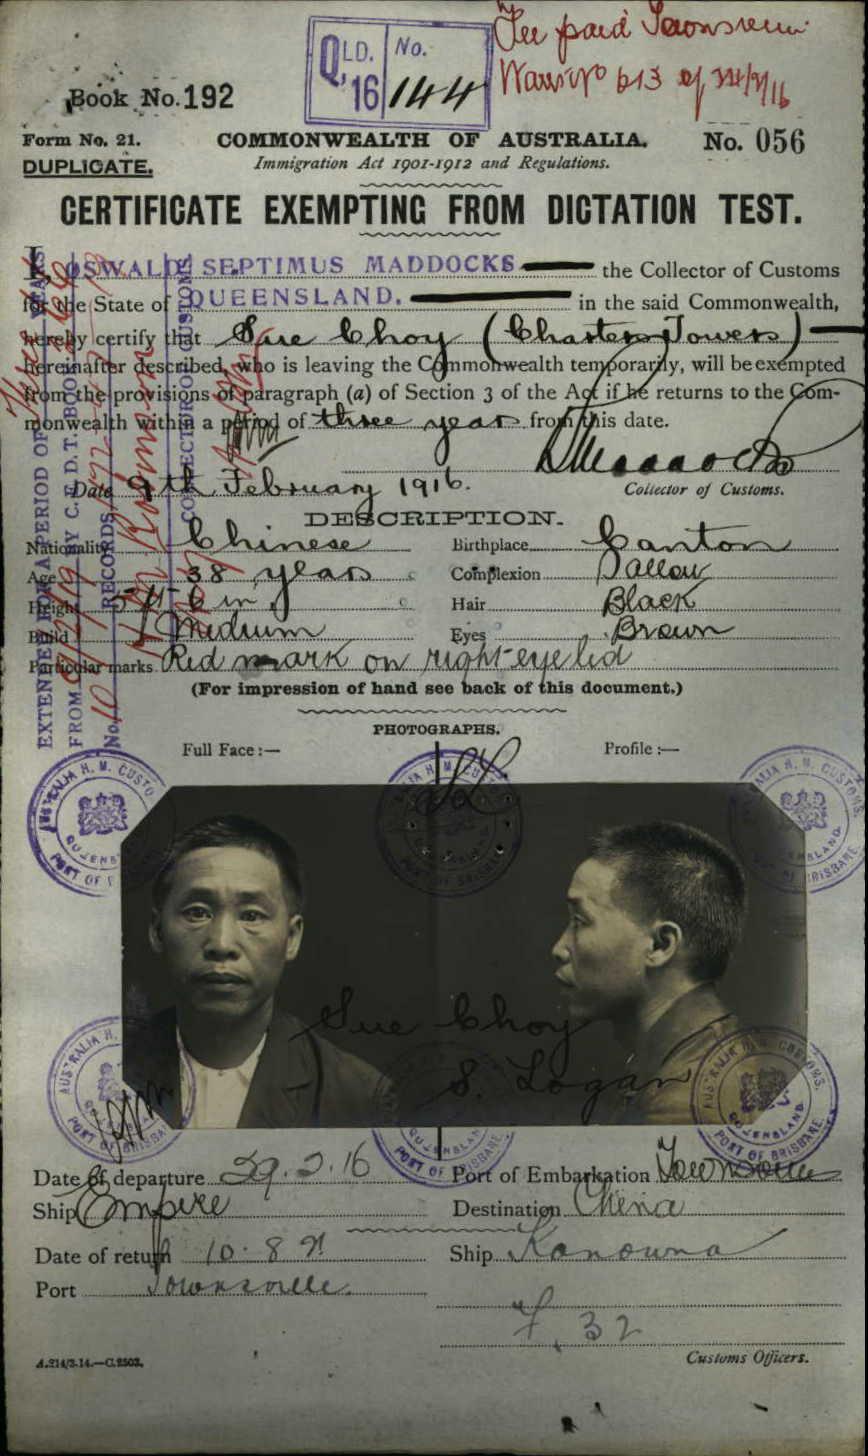 Fee paid Townsville
QLD. No.
16 144
613 of
Book No. 192
Form No. 21.
COMMONWEALTH OF AUSTRALIA.
No. 056
DUPLICATE.
Immigration Act 1901-1912 and Regulations.
CERTIFICATE EXEMPTING FROM DICTATION TEST.
I, OSWALD SEPTIMUS MADDOCKS the Collector of Customs
for the State of QUEENSLAND. in the said Commonwealth,
hereby certify that Sue Choy (Charters Towers)
hereinafter described, who is leaving the Commonwealth temporarily, will be exempted
from the provisions of paragraph (a) of Section 3 of the Act if he returns to the Com-
monwealth within a period of three years from this date.
Date 9th February 1916.
Collector of Customs.
EXTENDED FOR A PERIOD OF YEARS
FROM BY C.E.D.T. BOOK
No. RECORDS
COLLECTOR OF CUSTOMS
DESCRIPTION.
Nationality Chinese Birthplace Canton
Age 38 years Complexion Sallow
Height 5 ft 6 in Hair Black
Build Medium Eyes Brown
Particular marks Red mark on right eye lid
(For impression of hand see back of this document.)
PHOTOGRAPHS.
Full Face :— Profile :—
AUSTRALIA H. M. CUSTOMS.
QUEENSLAND
PORT OF BRISBANE
Sue Choy
S. Logan
Date of departure 29.2.16 Port of Embarkation Townsville
Ship Empire Destination China
Date of return 10.8.21 Ship Kanowna
Port Townsville
F. 32
A.214/3.14.—C.2503.
Customs Officers.